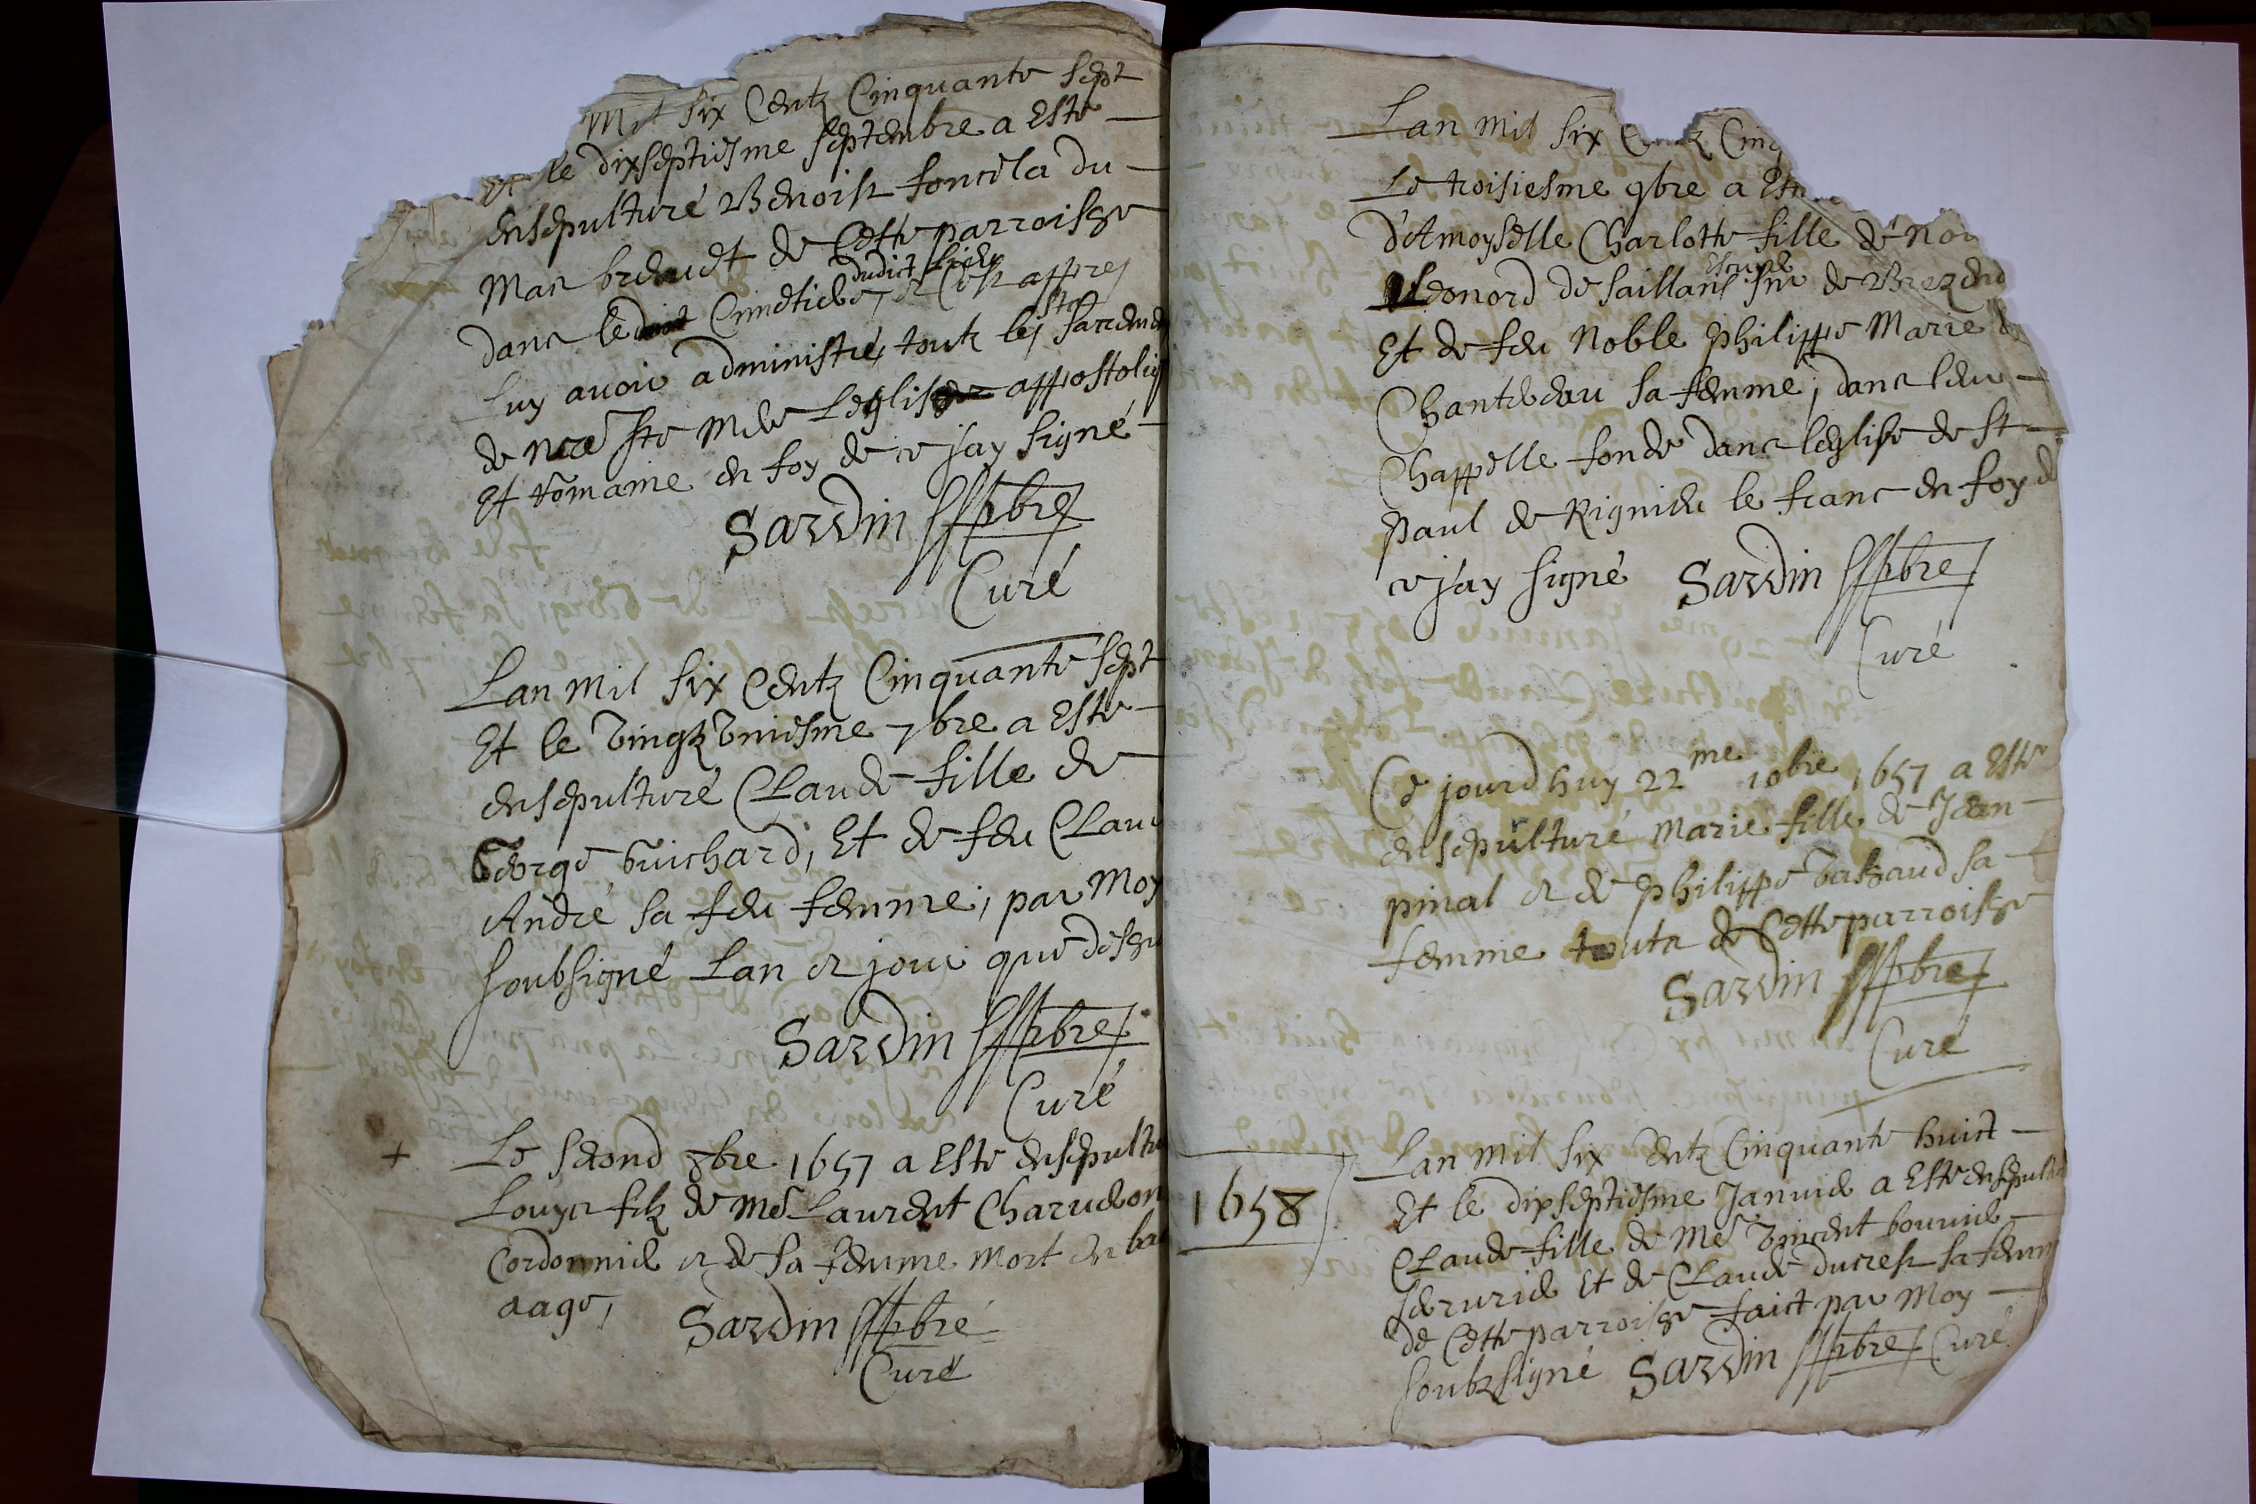 Mil six Centz Cinquante sept
et le dixseptiesme septembre a Este
ensepulturé Benoist fonteila du
Mas breuuet de Cette parroisse
dans le Cimetiere dudict lieu, et C'est appres
luy auoir administré toutz les sts sacremen
de nre ste mere Leglise appostoliq
Et romaine en foy de ce jay signé
Sardin pbre
Curé
Lan mil six Centz Cinquante sept
Et le vingt vniesme 7bre a Este
ensepulturé Claude fille de
George Guichard, Et de feu Clau
André sa feu femme, par Moy
soubsigné Lan et jour que dessu
Sardin pbre
Curé
+ Le second 8bre 1657 a Este ensepultu
Louys filz de Me Laurent Charueron
Cordonnier et de sa femme Mort en bas
aage, Sardin pbre
Curé
Lan mil six Centz Cinq
Le troisiesme 9bre a Este
d'Amoyselle Charlotte fille de No
Leonord de Saillans Escuyer sr de
Et de feu Noble philippe Marie
Chantereau sa femme, dans leur
Chappelle fonde dans leglise de st
paul de Rignieu le franc en foy d
ce jay signé Sardin pbre
Curé
Ce jourdhuy 22me 10bre 1657 a Este
ensepulturé Marie fille de Jean
pinal et de philippe sa
femme touts de Cette parroisse
Sardin pbre
Curé
1658
Lan mil six Centz Cinquante huict
Et le dixseptiesme Januier a Este ensepultu
Claude fille de Me Vincent bouuier
serurier Et de Claude ducrest sa femm
de Cette parroisse faict par Moy
soubzsigné Sardin pbre Curé